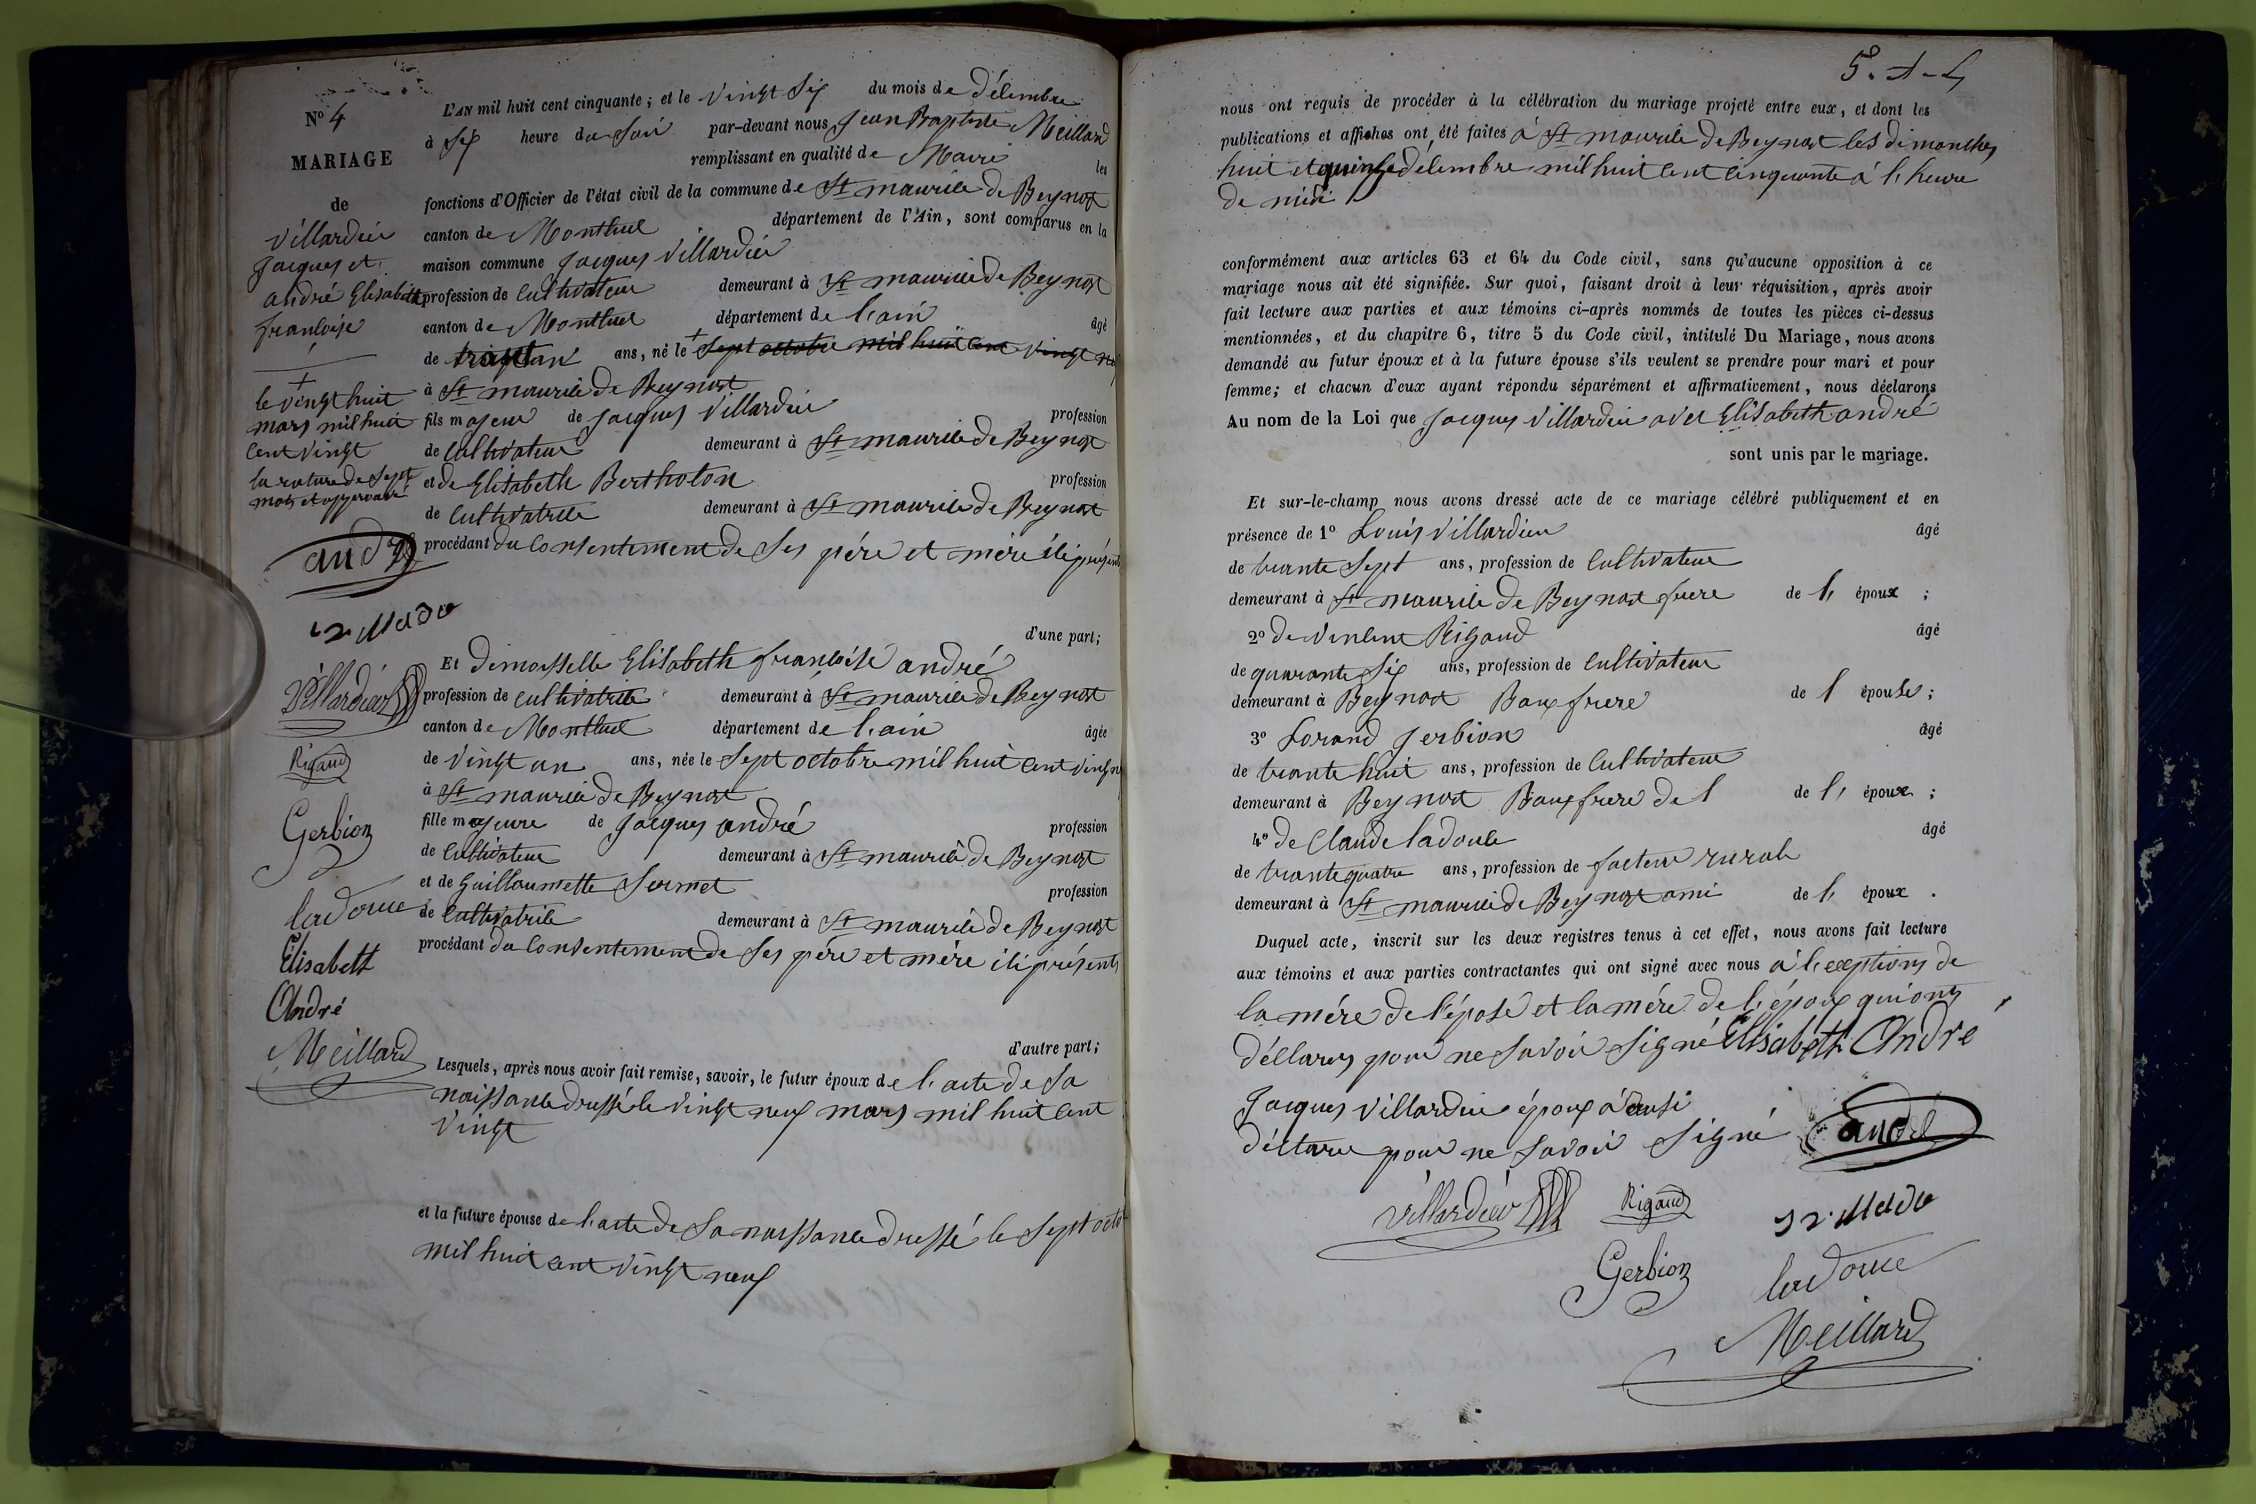 N° 4
MARIAGE
de
Villardier
Jacques et
andré Elisabeth
francoise
+
le vingt huit
mars mil huit
cent vingt
la rature de sept
mots et approuvé
andré
Villardier
Rigaud
Gerbion
ladouce
Elisabeth
André
Meillard
L'AN mil huit cent cinquante ; et le vingt Six du mois de délembre
à Six heure du Soir par-devant nous Jean Baptiste Meillard
remplissant en qualité de Maire les
fonctions d'Officier de l'état civil de la commune de St maurice de Beynost
canton de Montluel département de l'Ain, sont comparus en la
maison commune Jacques Villardier
profession de Cultivateur demeurant à St maurice de Beynost
canton de Montluel département de l'ain âgé
de trantan ans, né le + Sept octobre mil huit cent vingt neuf
à St maurice de Beynost
fils majeur de Jacques Villardier profession
de Cultivateur demeurant à St maurice de Beynost
et de Elisabeth Bertholon profession
de Cultivatrice demeurant à St maurice de Beynost
procédant du Consentement de Ses père et mère ici présents
d'une part;
Et demoiselle Elisabeth francoise andré
profession de Cultivatrice demeurant à St maurice de Beynost
canton de Montluel département de l'ain âgée
de vingt un ans, née le Sept octobre mil huit cent vingt n
à St maurice de Beynost
fille majeure de Jacques andré profession
de Cultivateur demeurant à St maurice de Beynost
et de Guillaumette Sermet profession
de Cultivatrice demeurant à St maurice de Beynost
procédant du Consentement de Ses père et mère ici présents
d'autre part;
Lesquels, après nous avoir fait remise, savoir, le futur époux de l'acte de Sa
naissance dressé le vingt neuf mars mil huit cent
vingt
et la future épouse de l'acte de Sa naissance dressé le Sept octo
mil huit cent vingt neuf
nous ont requis de procéder à la célébration du mariage projeté entre eux, et dont les
publications et affiches ont été faites à St maurice de Beynost les dimanches
huit et quinze délembre mil huit cent cinquante à l'heure
de midi
conformément aux articles 63 et 64 du Code civil, sans qu'aucune opposition à ce
mariage nous ait été signifiée. Sur quoi, faisant droit à leur réquisition, après avoir
fait lecture aux parties et aux témoins ci-après nommés de toutes les pièces ci-dessus
mentionnées, et du chapitre 6, titre 5 du Code civil, intitulé Du Mariage, nous avons
demandé au futur époux et à la future épouse s'ils veulent se prendre pour mari et pour
femme; et chacun d'eux ayant répondu séparément et affirmativement, nous déclarons
Au nom de la Loi que Jacques Villardier avec Elisabeth andré
sont unis par le mariage.
Et sur-le-champ nous avons dressé acte de ce mariage célébré publiquement et en
présence de 1° Louis Villardier âgé
de trante Sept ans, profession de Cultivateur
demeurant à St maurice de Beynost frere de l' époux ;
2° de Vincent Rigaud âgé
de quarante Six ans, profession de Cultivateur
demeurant à Beynost Baux frere de l épouse ;
3° Lorand Jerbion âgé
de trante huit ans, profession de Cultivateur
demeurant à Beynost Baux frere de l de l' époux ;
4° de Claude ladoule âgé
de trante quatre ans, profession de facteur rurale
demeurant à St maurice de Beynost ami de l' époux .
Duquel acte, inscrit sur les deux registres tenus à cet effet, nous avons fait lecture
aux témoins et aux parties contractantes qui ont signé avec nous à l'exeptions de
la mére de l'épose et la mére de l'époux qui ont
déllarez pour ne Savoir Signé Elisabeth André
Jacques Villardier époux à ausi
déllare pour ne Savoir Signé andré
Villardier Rigaud
Gerbion ladouce
Meillard